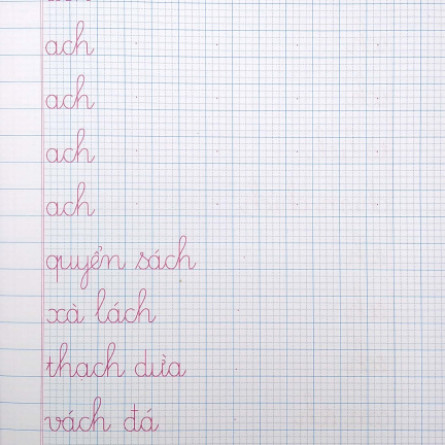 ach
ach
ach
ach
quyển sách
xà lách
thạch dừa
vách đá